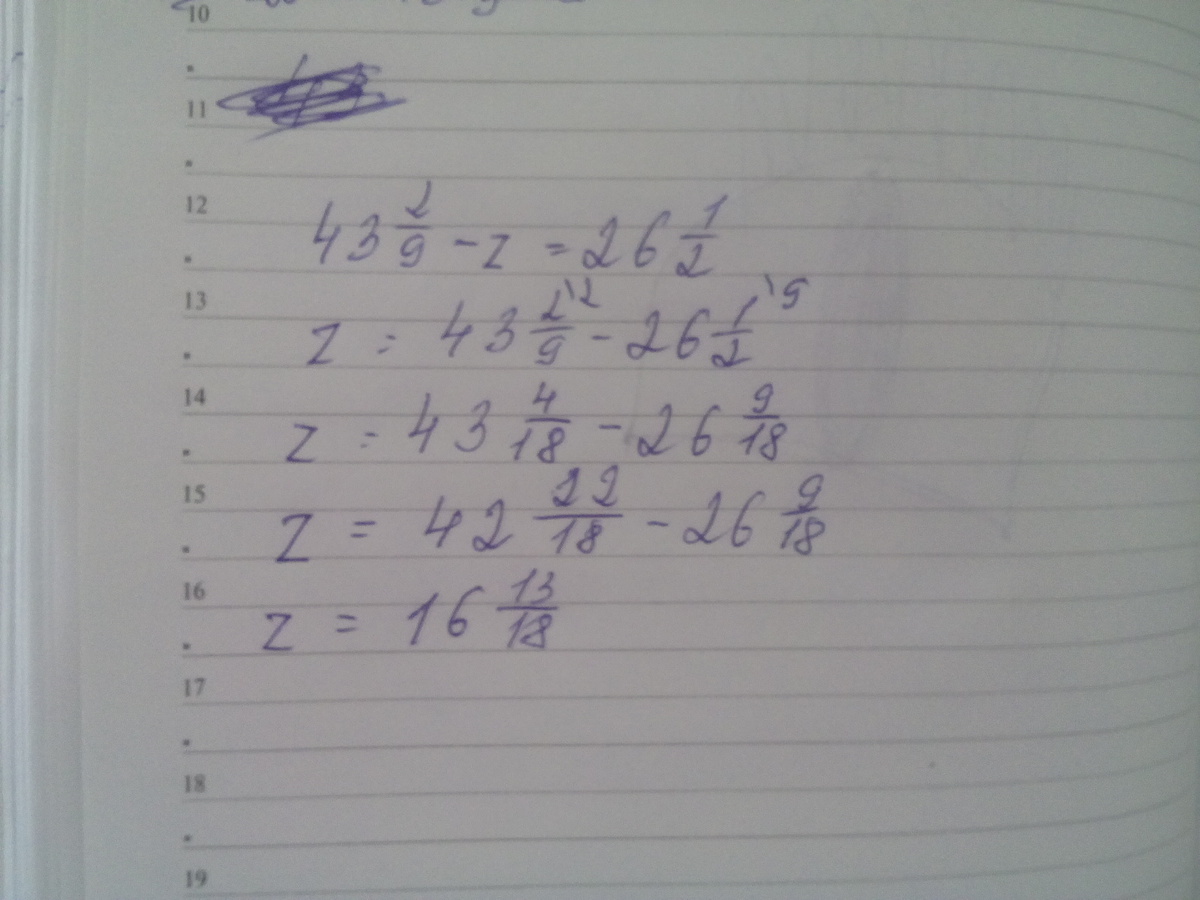 10
11
12
43 2/9 - z = 26 1/2
13
z = 43 2/9 \2 - 26 1/2 \9
14
z = 43 4/18 - 26 9/18
15
z = 42 22/18 - 26 9/18
16
z = 16 13/18
17
18
19